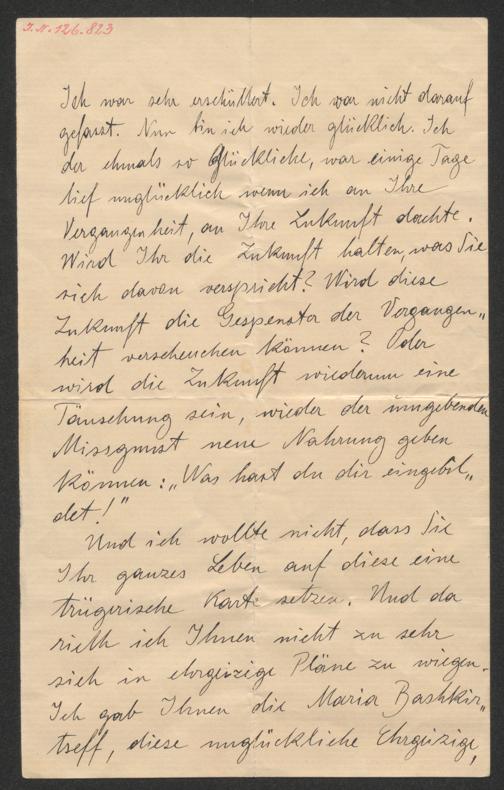 J.N. 126.823
Ich war sehr erschüttert. Ich war nicht darauf
gefasst. Nun bin ich wieder glücklich. Ich
der ehmals so Glückliche, war einige Tage
tief unglücklich wenn ich an Ihre
Vergangenheit, an Ihre Zukunft dachte.
Wird Ihr die Zukunft halten, was Sie
sich davon verspricht? Wird diese
Zukunft die Gespenster der Vergangen„
heit verscheuchen können? Oder
wird die Zukunft wiederum eine
Täuschung sein, wieder der umgebenden
Missgunst neue Nahrung geben
können: „Was hast du dir eingebil„
det!"
Und ich wollte nicht, dass Sie
Ihr ganzes Leben auf diese eine
trügerische Karte setzen. Und da
rieth ich Ihnen nicht zu sehr
sich in ehrgeizige Pläne zu wiegen.
Ich gab Ihnen die Maria Bashkir„
tseff, diese unglückliche Ehrgeizige,